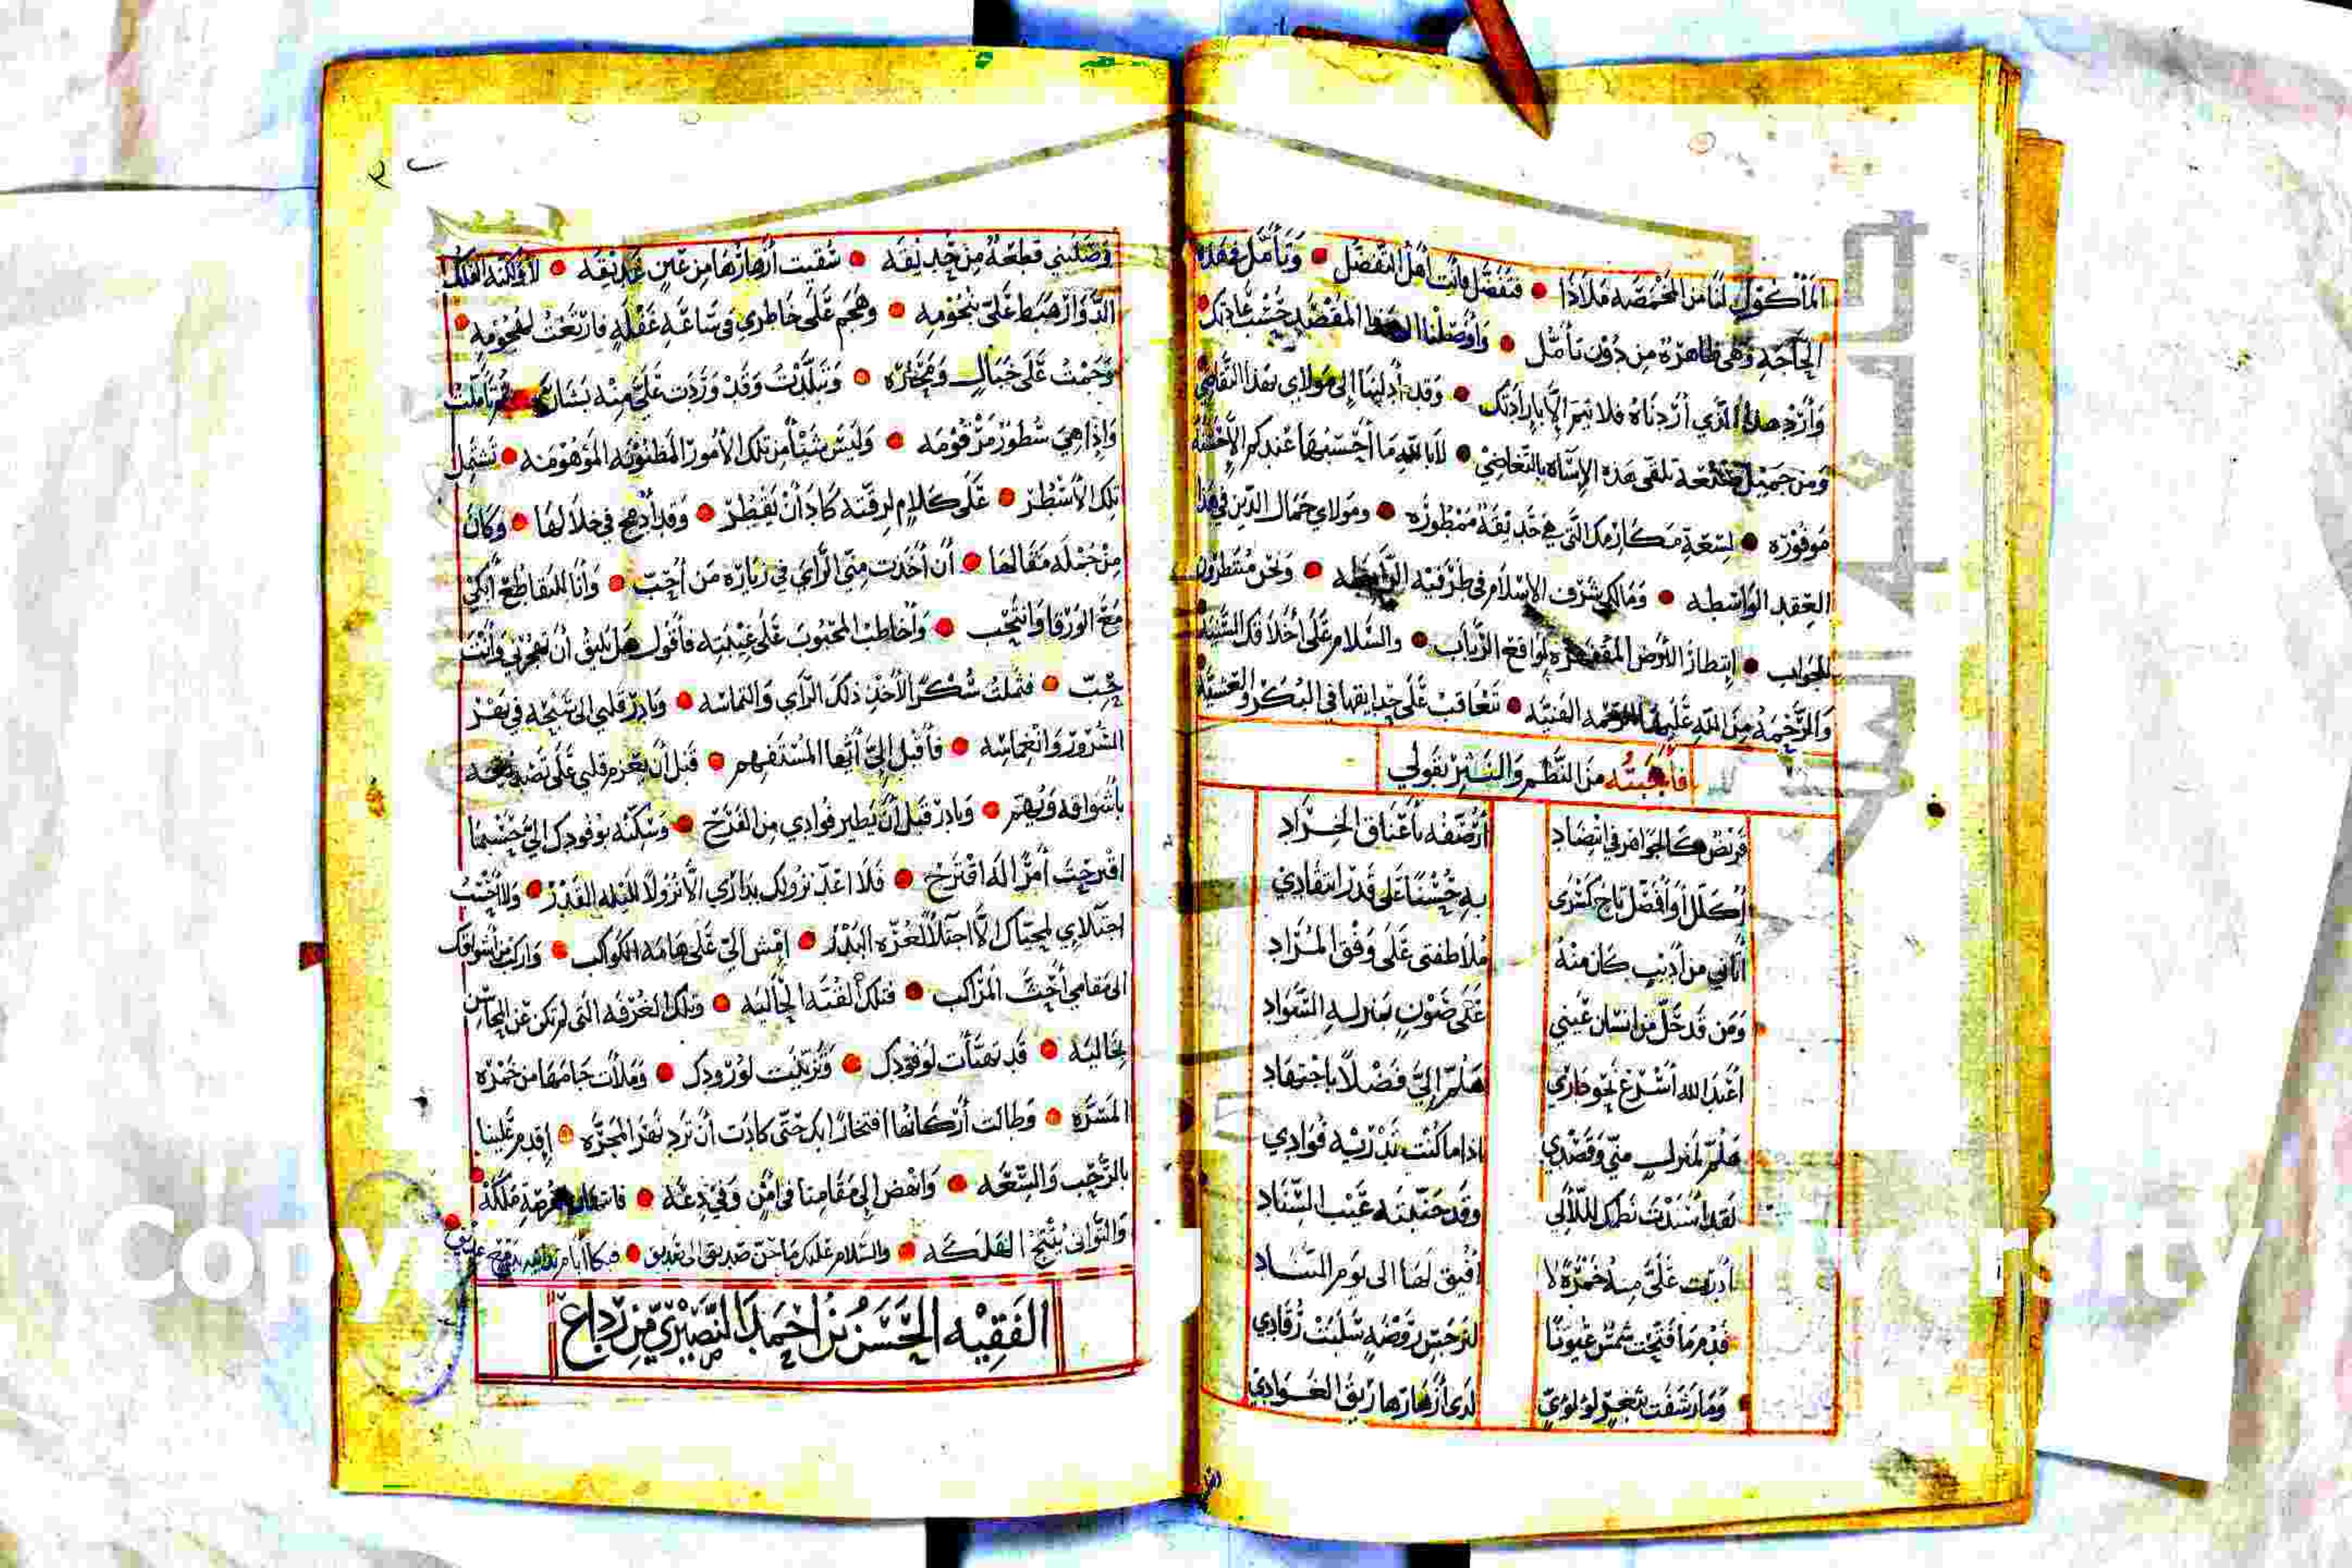 المأكول لنا من المخمصه ملاذا • فتفضل فانت أهل التفضل • وتأمل فهذه
الحاجه وهي ظاهرة من دون تأمل • وأوصلنا المقصد حسب عادتك
وأرد هذا الذي أردناه فلا تتم الا بإرادتك • وقد أدليتها إلى مولاي بهذا التقاضي
ومن جميل تلقى هذه الإساة بالتغاضي • لا بالله ما أحسبها عندكم الا حسنة
موفوره • لسعة مكارمك التي هي حديقة ممطوره • ومولاي جمال الدين في هذا
العقد الواسطه • ومالكي شرف الاسلام في طرفيه الرابطه • ونحن منتظرون
للجواب • إنتظار الأرض المقفره لواقع الرباب • والسلام على أخلاقك السنيه
والرحمة من الله عليها الغنيه • تتعاقب على حدايقها في البكر والعشيه
فأجبته من النظم والنثر بقولي
قريض كالجواهر في انتضاد أرصفه بأعناق الخراد
أكلل أو أفضل تاج كسرى به حسنا على قدر انتقادي
أتاني من أديب كان منه ملاطفتي على وفق المراد
ومن قد حل من انسان عيني على صون بمنزله السواد
أعبد الله أسرع نحو داري هلم إلي فضلا باجتهاد
هلم لمنزل مني وقصدي اذا ما كنت تدريه فوادي
لقد أسندت نظمك للآلي وقد جنبته عيب السناد
أدرت علي منه خمرة لا أفيق لها الى يوم التناد
فدم ما فتحت شمس عيونا لنرجس روضه سلبت رقادي
وما رشفت بثغر لولوي لدى ازهارها ريق الغوادي
وصلتني قطعة من حديقه • سقيت أزهارها من عين غديقه • الفلك
الدوار هبط علي بنجومه • وهجم على خاطري في ساعة غفله فارتعت لهجومه •
وحمت على خيال • وتبلدت وقد وردت علي منه بشاره • ثم تأملت
واذا هي سطور مرقومه • وليس شيئا من تلك الأمور المظنونه الموهومه • تشتمل
تلك الأسطر • على كلام لرقته كاد أن يقطر • وقد أدمج في خلالها • وكان
من جمله مقالها • أن أخذت مني الراي في زيارة من أحب • وأنا للتقاطع أبكي
مع الورقا وانتحب • وأخاطب المحبوب على غيبته فأقول هل يليق أن تهجرني وأنت
حب • فثملت شكرا لأخذ ذلك الراي والتماسه • وبادر قلبي الى سبحه في نهر
السرور وانغماسه • فأقبل إلي أيها المستفهم • قبل أن يعزم قلبي على
بأشواقه ويهم • وبادر قبل أن يطير فوادي من الفرح • وسكنه بوفودك الي حسبما
اقترحت أمرا له اقترح • فلا اعد نزولك بداري الا نزولا لليله القدر • ولا أحسب
اجتلاي لمحياك الا اجتلا لغرة البدر • امش الي على هامه الكواكب • واركب من أشواقك
الى مقامي أحث المراكب • فتلك القبه الحاليه • وتلك الغرفه التي لم تكن عن المحاسن
بخاليه • قد تهيأت لوفودك • وتزينت لورودك • وملأت جامها من خمرة
المسره • وطالت أركانها افتخارا بك حتى كادت أن ترد نهر المجره • إقدم علينا
بالرحب والسعه • وانهض إلى مقامنا في أمن وفي دعه • فرصة ملكه
والتواني ينتج الهلكه • والسلام عليك ما حن صديق الى صديق •
الفقيه الحسن بن احمد النصيري من رداع